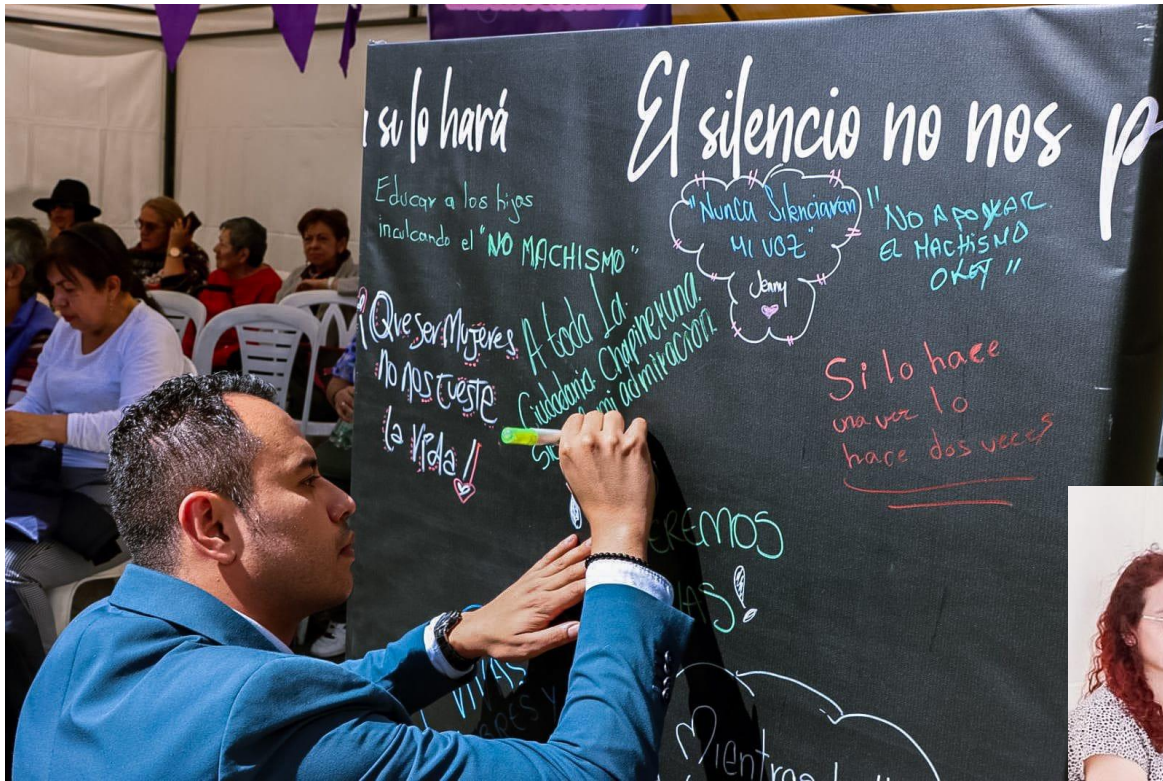 si lo hará
El silencio no nos p
Educar a los hijos
inculcando el "NO MACHISMO"
"Nunca Silenciaran
MI VOZ"
Jenny
"NO APOYAR
EL MACHISMO
OKEY"
¡Que ser Mujeres
no nos cueste
la vida!
A toda la
Ciudadania Chapineruna.
mi admiración.
Si lo hace
una vez lo
hace dos veces
EREMOS
AS!
VIVAS
RES Y
Mientras